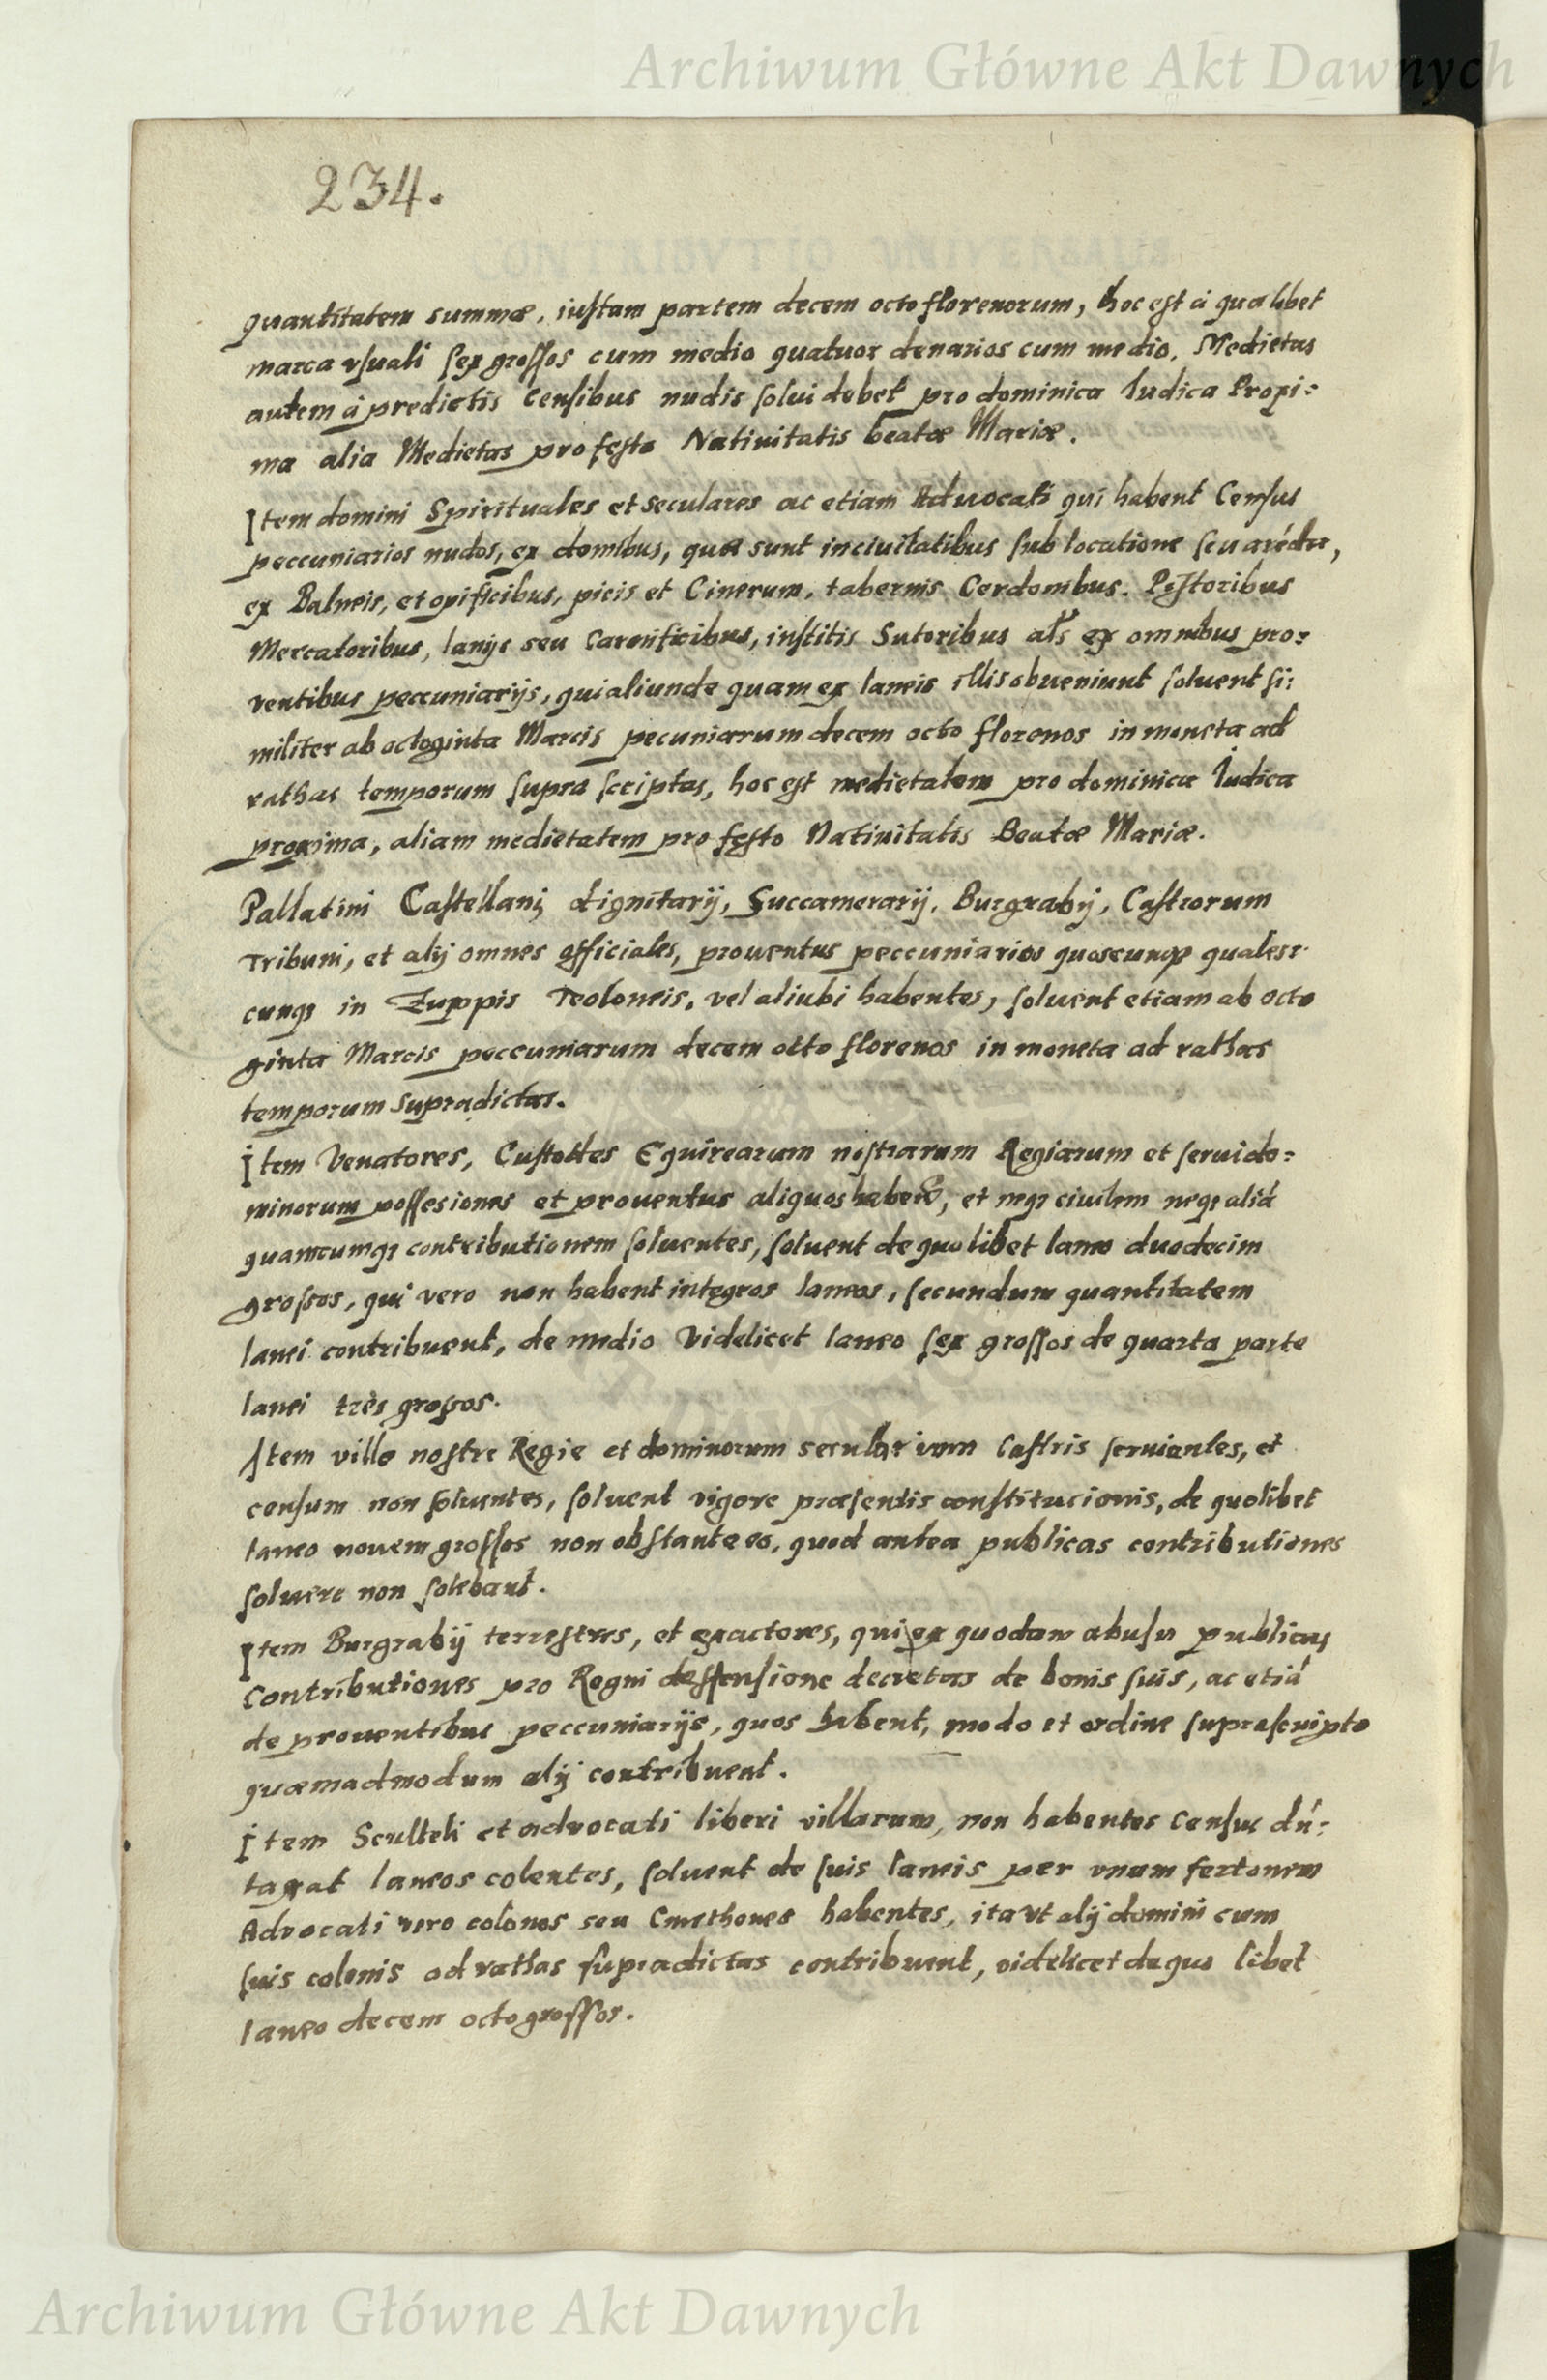 Archiwum Główne Akt Dawnych
234.
quantitatem summæ, iustam partem decem octo florenorum, hoc est à qualibet
marca vsuali sex grossos cum medio quatuor denarios cum medio, Medietas
autem à predictis Censibus nudis solui debet pro dominica Iudica Propi:
ma alia Medietas pro festo Natiuitatis beatæ Mariæ.
Item domini Spirituales et seculares ac etiam Aduocati qui habent Census
peccuniarios nudos, ex domibus, quæ sunt in ciuitatibus sub locatione seu arédu,
ex Balneis, et opificibus, picis et Cinerum, tabernis Cerdonibus. Pistoribus
Mercatoribus, lanijs seu Carnificibus, institis Sutoribus als ex omnibus pro:
ventibus peccuniarijs, qui aliunde quam ex laneis illis obueniunt soluent si:
militer ab octoginta Marcis pecuniarum decem octo florenos in moneta ad
rathas temporum supra scriptas, hoc est medietatem pro dominica Iudica
proxima, aliam medietatem pro festo Natiuitatis Beatæ Mariæ.
Pallatini Castellani dignitarij, Succamerarij, Burgrabij, Castrorum
Tribuni, et alij omnes officiales, prouentus peccuniarios quoscunqz quales:
cunqz in Zuppis Teoloneis, vel aliubi habentes, soluent etiam ab octo
ginta Marcis peccuniarum decem octo florenos in moneta ad rathas
temporum supradictas.
Item Venatores, Custodes Equirearum nostrarum Regiarum et serui do:
minorum possesiones et prouentus aliquos haben̄, et neqz ciuilem neqz aliá
quamcumqz contributionem soluentes, soluent de quolibet laneo duodecim
grossos, qui vero non habent integros laneos, secundum quantitatem
lanei contribuent, de medio Videlicet laneo sex grossos de quarta parte
lanei très grossos.
Item villæ nostre Regie et dominorum secularium Castris seruientes, et
censum non soluentes, soluent vigore præsentis constitucionis, de quolibet
laneo nouem grossos non obstante eo, quod antea publicas contributiones
soluere non solebant.
Item Burgrabij terrestres, et exactores, qui ex quodam abusu publicas
Contributiones pro Regni deffensione decretas de bonis suis, ac etiá
de prouentibus peccuniarijs, quos habent, modo et ordine suprascripto
quæmadmodum alij contribuent.
Item Sculteti et advocati liberi villarum, non habentes Census dú:
taxat laneos colentes, soluent de suis laneis per vnum fertonem
Advocati vero colonos seu Cmethones habentes, ita vt alij domini cum
suis colonis ad rathas supradictas contribuent, videlicet de quo libet
laneo decem octo grossos.
Archiwum Główne Akt Dawnych